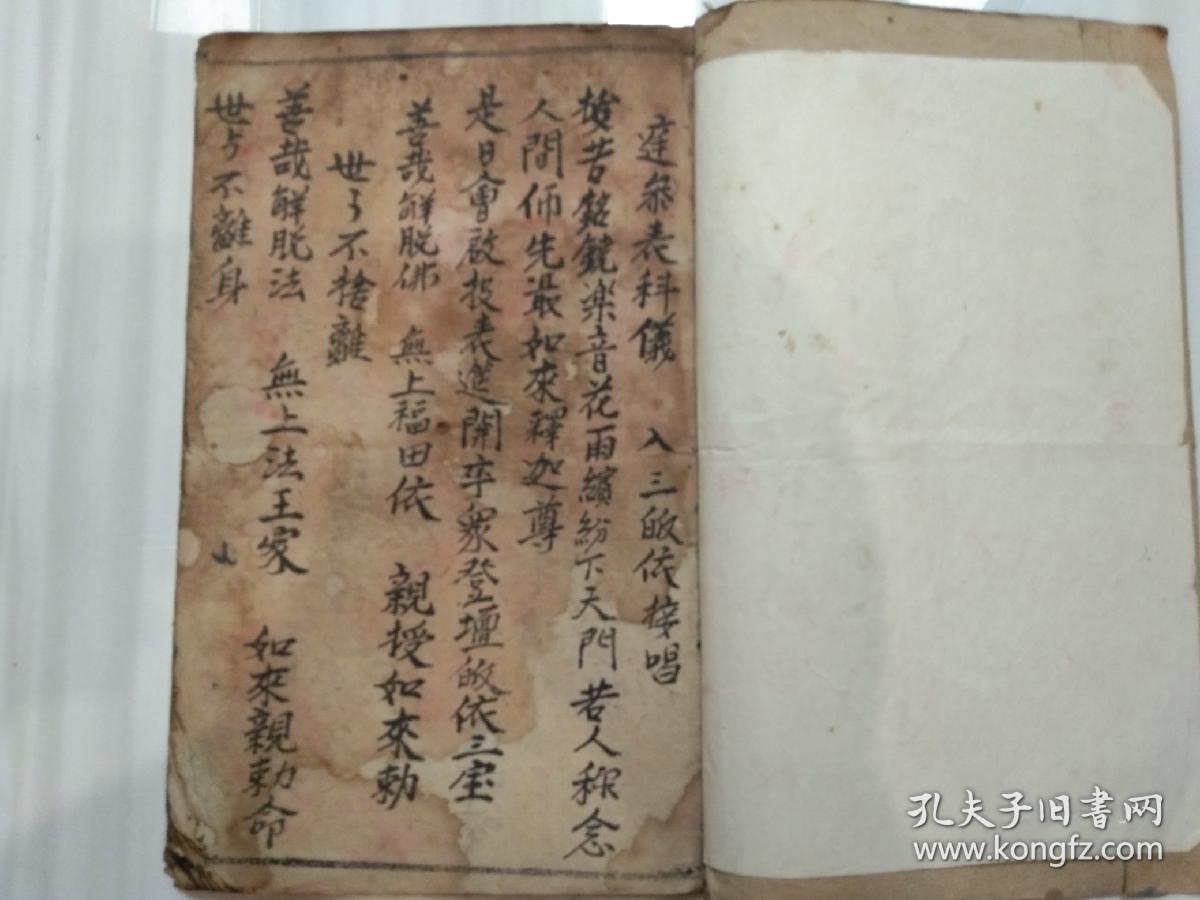 表科儀 入三皈依接唱
昔鐃樂音花雨繽紛下天門若人称念
人間師先最如來釋迦尊
是日會啟投表進開率眾登壇皈依三宝
善哉解脱佛 無上福田依 親授如來勅
世々不捨離
善哉解脱法 無上法王家 如來親勅命
世々不離身
孔夫子旧書网
www.kongfz.com